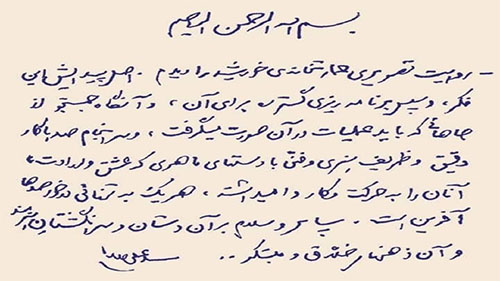 بسم الله الرحمن الرحیم
- روایت تصویریِ خمارشتمادی خورشید را دیدم. اصل پیدایش این
فکر، و سپس برنامه ریزی گسترده برای آن، و آنگاه جستجو از
جاهائی که باید عملیات در آن صورت میگرفت، و سرانجام صدها کار
دقیق و ظریف هنری و فنّی با دستهای ماهری که عشق و ارادت،
آنان را به حرکت و کار وامیداشته، هر یک به تنهائی در خور صدها
آفرین است. سپاس و سلام بر آن دستان و سرانگشتانِ هنرمند
و آن ذهنهای خلّاق و مبتکر..
سید علی خامنه‌ای